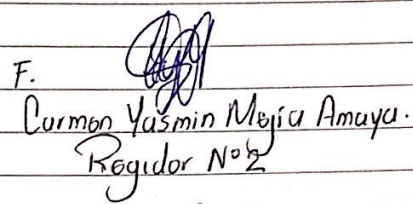 F.
Carmen Yasmin Mejía Amaya.
Regidor Nº 2